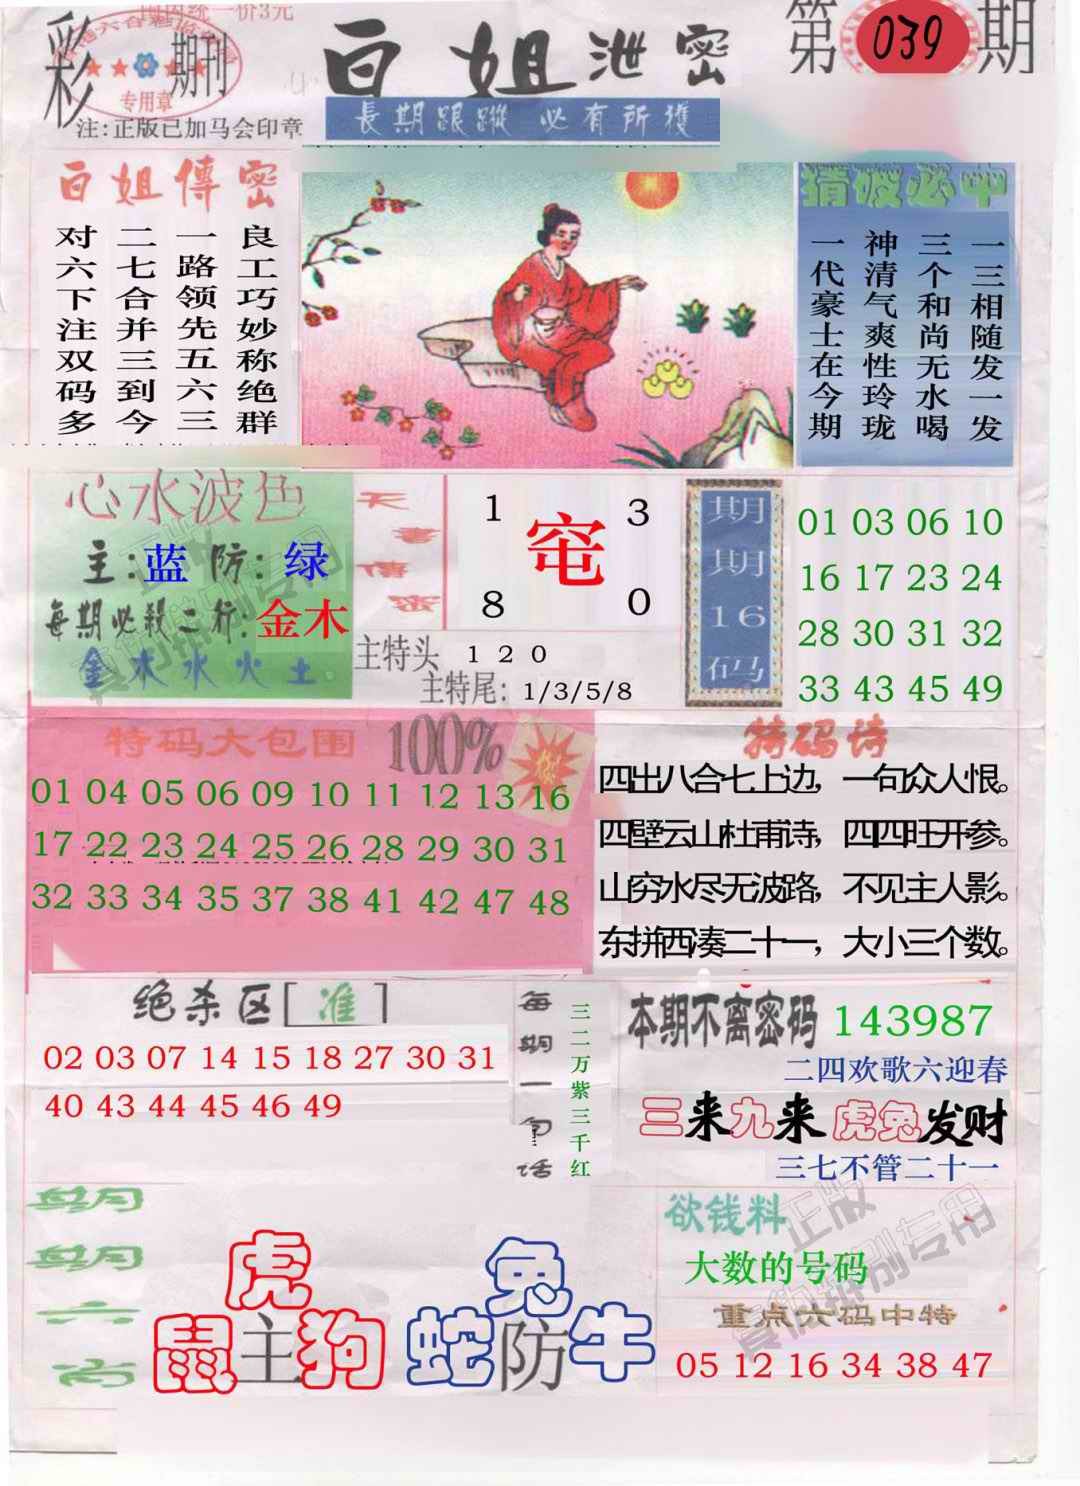 国内统一价3元
彩 期刊
专用章
注:正版已加马会印章
白姐泄密
第 039 期
長期跟蹤 必有所獲
白姐傳密
良工巧妙称绝群
一路领先五六三
二七合并三到今
对六下注双码多
猜波必中
一三相随发一发
三个和尚无水喝
神清气爽性玲珑
一代豪士在今期
心水波色
主:蓝 防:绿
每期必殺二行:金木
金木水火土
天書傳密
1 3
8 0
主特头 1 2 0
主特尾: 1/3/5/8
期期16码
01 03 06 10
16 17 23 24
28 30 31 32
33 43 45 49
特码大包围 100%
01 04 05 06 09 10 11 12 13 16
17 22 23 24 25 26 28 29 30 31
32 33 34 35 37 38 41 42 47 48
特码诗
四出八合七上边,一句众人恨。
四壁云山杜甫诗,四四旺开参。
山穷水尽无波路,不见主人影。
东拼西凑二十一,大小三个数。
绝杀区[准]
02 03 07 14 15 18 27 30 31
40 43 44 45 46 49
每期一句话
三二万紫三千红
本期不离密码 143987
二四欢歌六迎春
三来九来 虎兔发财
三七不管二十一
期期六肖
虎
鼠主狗
兔
蛇防牛
欲钱料
大数的号码
重点六码中特
05 12 16 34 38 47
正版